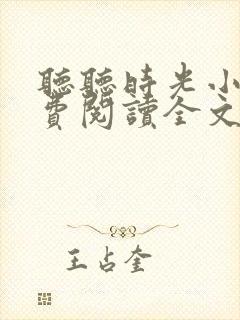 聽聽時光小
費閱讀全文
王占奎